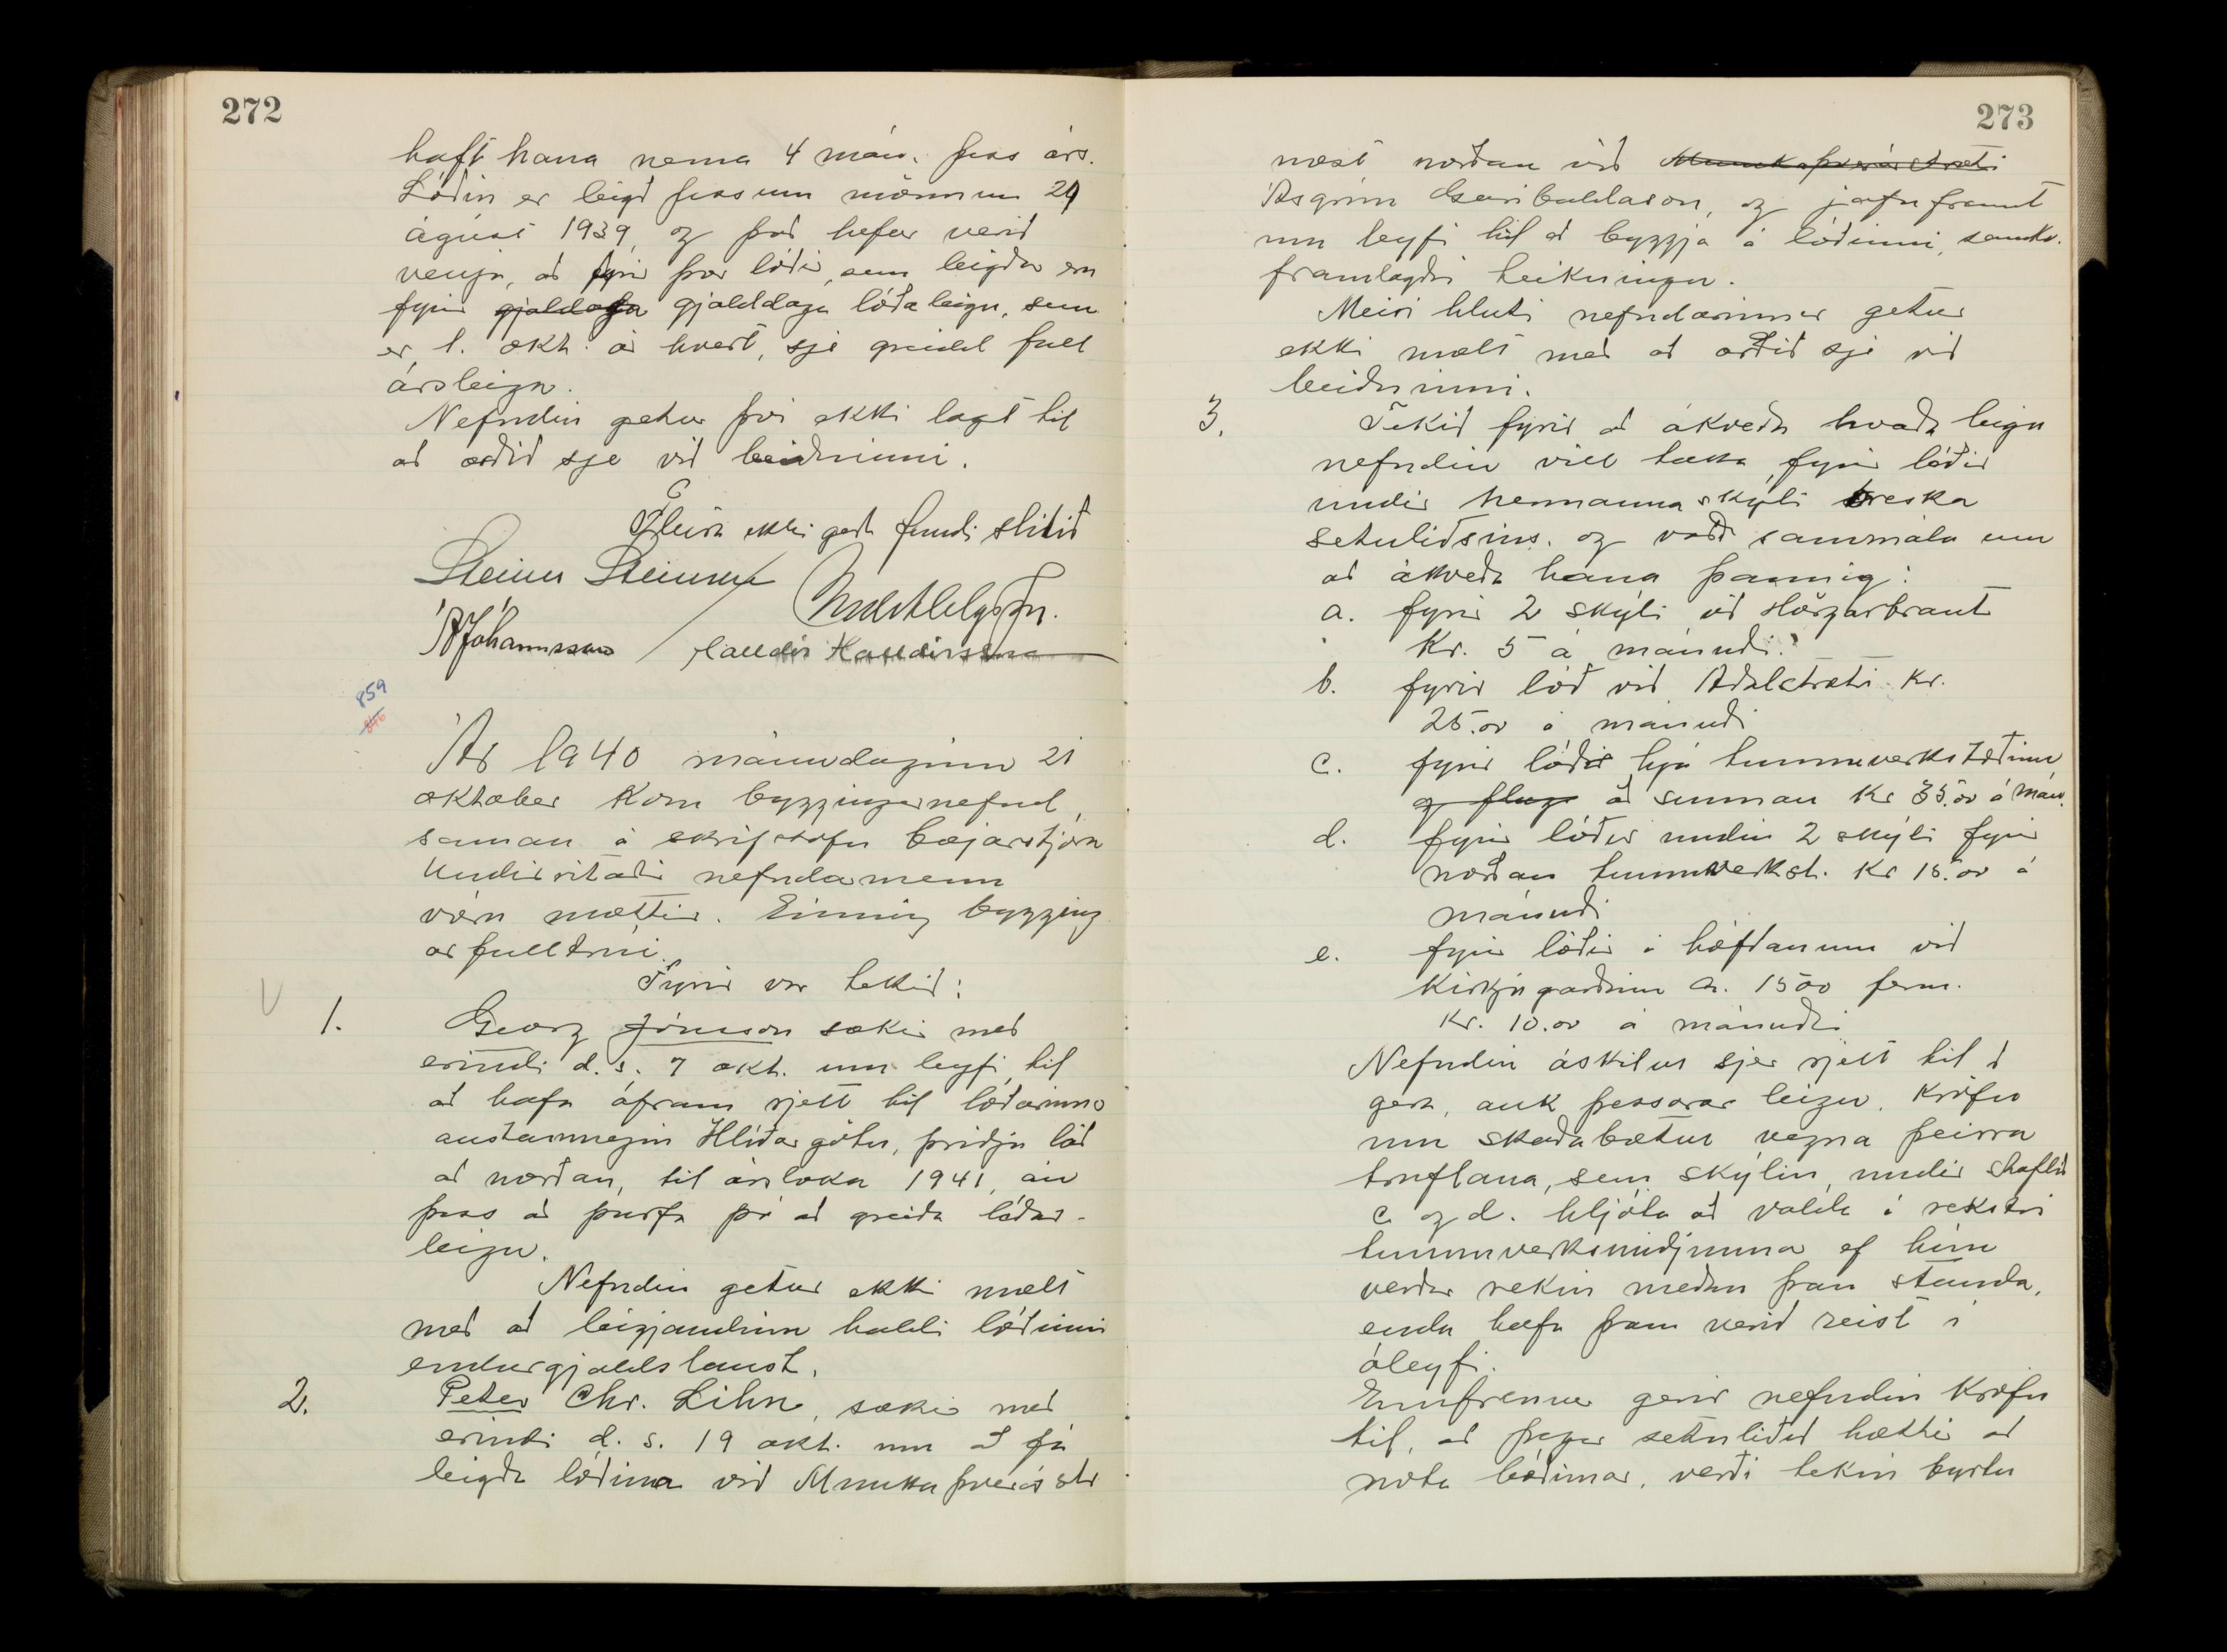 272
haft hana nema 4 mán. þess árs.
Lóðin er leigð þessum mönnum 29
ágúst 1939, og það hefur verið
venja, að fyrir þær lóðir, sem leigðar eru
fyrir gjalddaga gjalddaga lóðaleigu, sem
er 1. okt. ár hvert, sje greidd full
ársleiga.
Nefndin getur því ekki lagt til
að orðið sje við beiðninni.
Fleira ekki gert fundi slitið
Steinn Steinsen
Á Jóhannsson / Halldór Halldórsson
859
846
Ár 1940 mánudaginn 21
október kom byggingarnefnd
saman á skrifstofu bæjarstjóra
Undirritaðir nefndarmenn
voru mættir. Einnig bygging
arfulltrúi.
Fyrir var tekið:
1. Georg Jónsson sækir með
erindi d.s. 7 okt. um leyfi til
að hafa áfram rjett til lóðarinnar
austanmegin Hlíðargötu, þriðju lóð
að norðan, til ársloka 1941, án
þess að þurfa þó að greiða lóðar-
leigu.
Nefndin getur ekki mælt
með að leigjandinn haldi lóðinni
endurgjaldslaust.
2. Peter Chr. Lihn, sækir með
erindi d.s. 19 okt. um að fá
leigða lóðina við Munkaþverárstr
273
næst norðan við Munkaþverárstræti
Ásgrím Garibaldason, og jafnframt
um leyfi til að byggja á lóðinni, samkv.
framlagðri teikningu.
Meiri hluti nefndarinnar getur
ekki mælt með að orðið sje við
beiðninni.
3. Tekið fyrir að ákveða hvaða leigu
nefndin vill taka fyrir lóðir
undir hermannaskýli breska
setuliðsins. og varð sammála um
að ákveða hana þannig:
a. fyrir 2 skýli við Hörgárbraut
Kr. 5 á mánuði.
b. fyrir lóð við Aðalstræti Kr.
25.00 á mánuði
c. fyrir lóðir hjá tunnuverkstæðinu
að sunnan Kr 35.00 á mán.
d. fyrir lóðir undir 2 skýli fyrir
norðan tunnuverkst. Kr 15.00 á
mánuði
e. fyrir lóðir á höfðanum við
Kirkjugarðinn ca. 1500 ferm.
Kr. 10.00 á mánuði
Nefndin áskilur sjer rjett til að
gera, auk þessarar leigu, kröfu
um skaðabætur vegna þeirra
truflana, sem skýlin, undir staflið
c og d. hljóta að valda á rekstri
tunnuverksmiðjunnar ef hún
verður rekin meðan þau standa,
enda hafa þau verið reist í
óleyfi.
Ennfremur gerir nefndin kröfu
til, að þegar setuliðið hættir að
nota lóðirnar, verði tekin byrtu